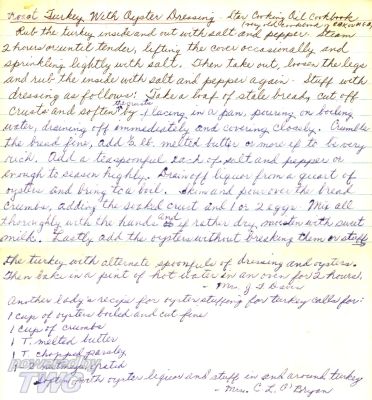 Roast Turkey With Oyster Dressing - Star Cooking Oil Cookbook
Rub the turkey inside and out with salt and pepper. Steam
2 hours or until tender, lifting the cover occasionally and
sprinkling lightly with salt. Then take out, loosen the legs
and rub the inside with salt and pepper again - Stuff with
dressing as follows: Take a loaf of stale bread, cut off
crusts and soften by placing in a pan, pouring on boiling
water, draining off immediately and covering closely. Crumble
the bread fine, add ½ lb. melted butter or more if to be very
rich. Add a teaspoonful each of salt and pepper or
enough to season highly. Drain off liquor from a quart of
oysters and bring to a boil. Skim and pour over the bread
crumbs, adding the soaked crust and 1 or 2 eggs. Mix all
thoroughly with the hands and if rather dry, moisten with sweet
milk. Lastly add the oysters without breaking them or stuff
the turkey with alternate spoonfuls of dressing and oysters.
Then bake in a pint of hot water in an oven for 2 hours.
- Mrs. J F Davis
Another lady's recipe for oyster stuffing for turkey calls for:
1 cup of oysters boiled and cut fine
1 cup of crumbs
1 T. melted butter
1 T. chopped parsley
nutmeg grated
Soften with oyster liquor and stuff in and around turkey
- Mrs. C L O'Bryan
powered by
TWC